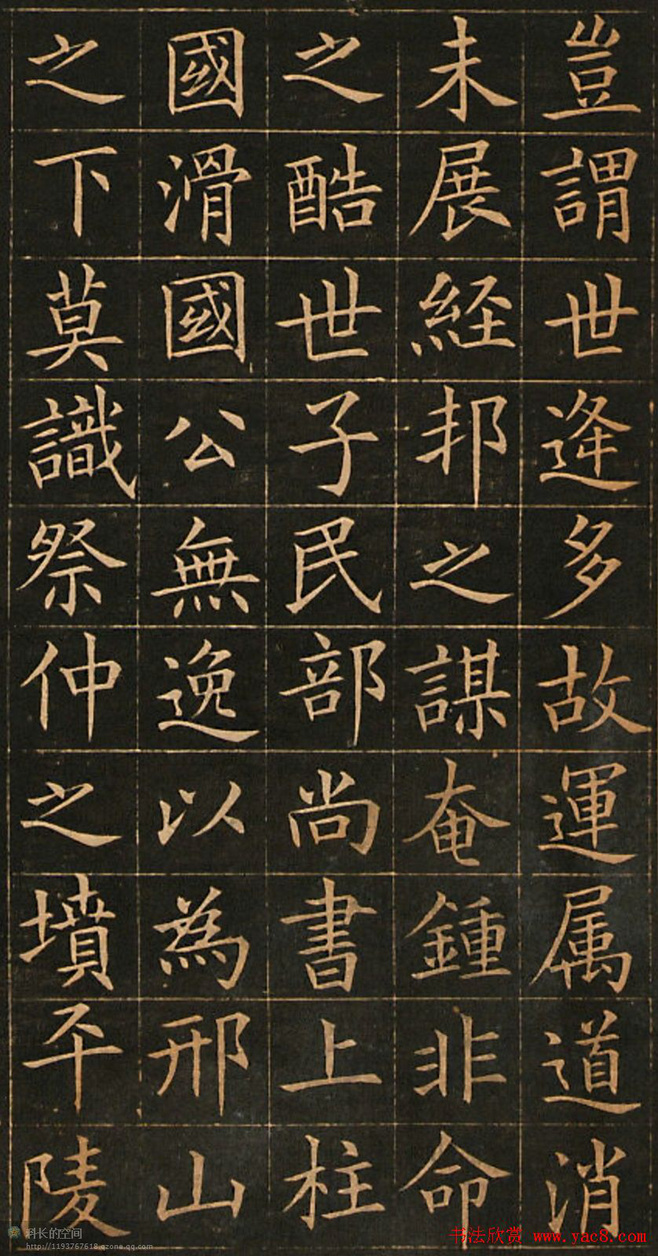 豈謂世逢多故運属道消
未展経邦之謀奄鍾非命
之酷世子民部尚書上柱
國滑國公無逸以為邢山
之下莫識祭仲之墳平陵
科长的空间
http://1193767618.qzone.qq.com
书法欣赏 www.yac8.com